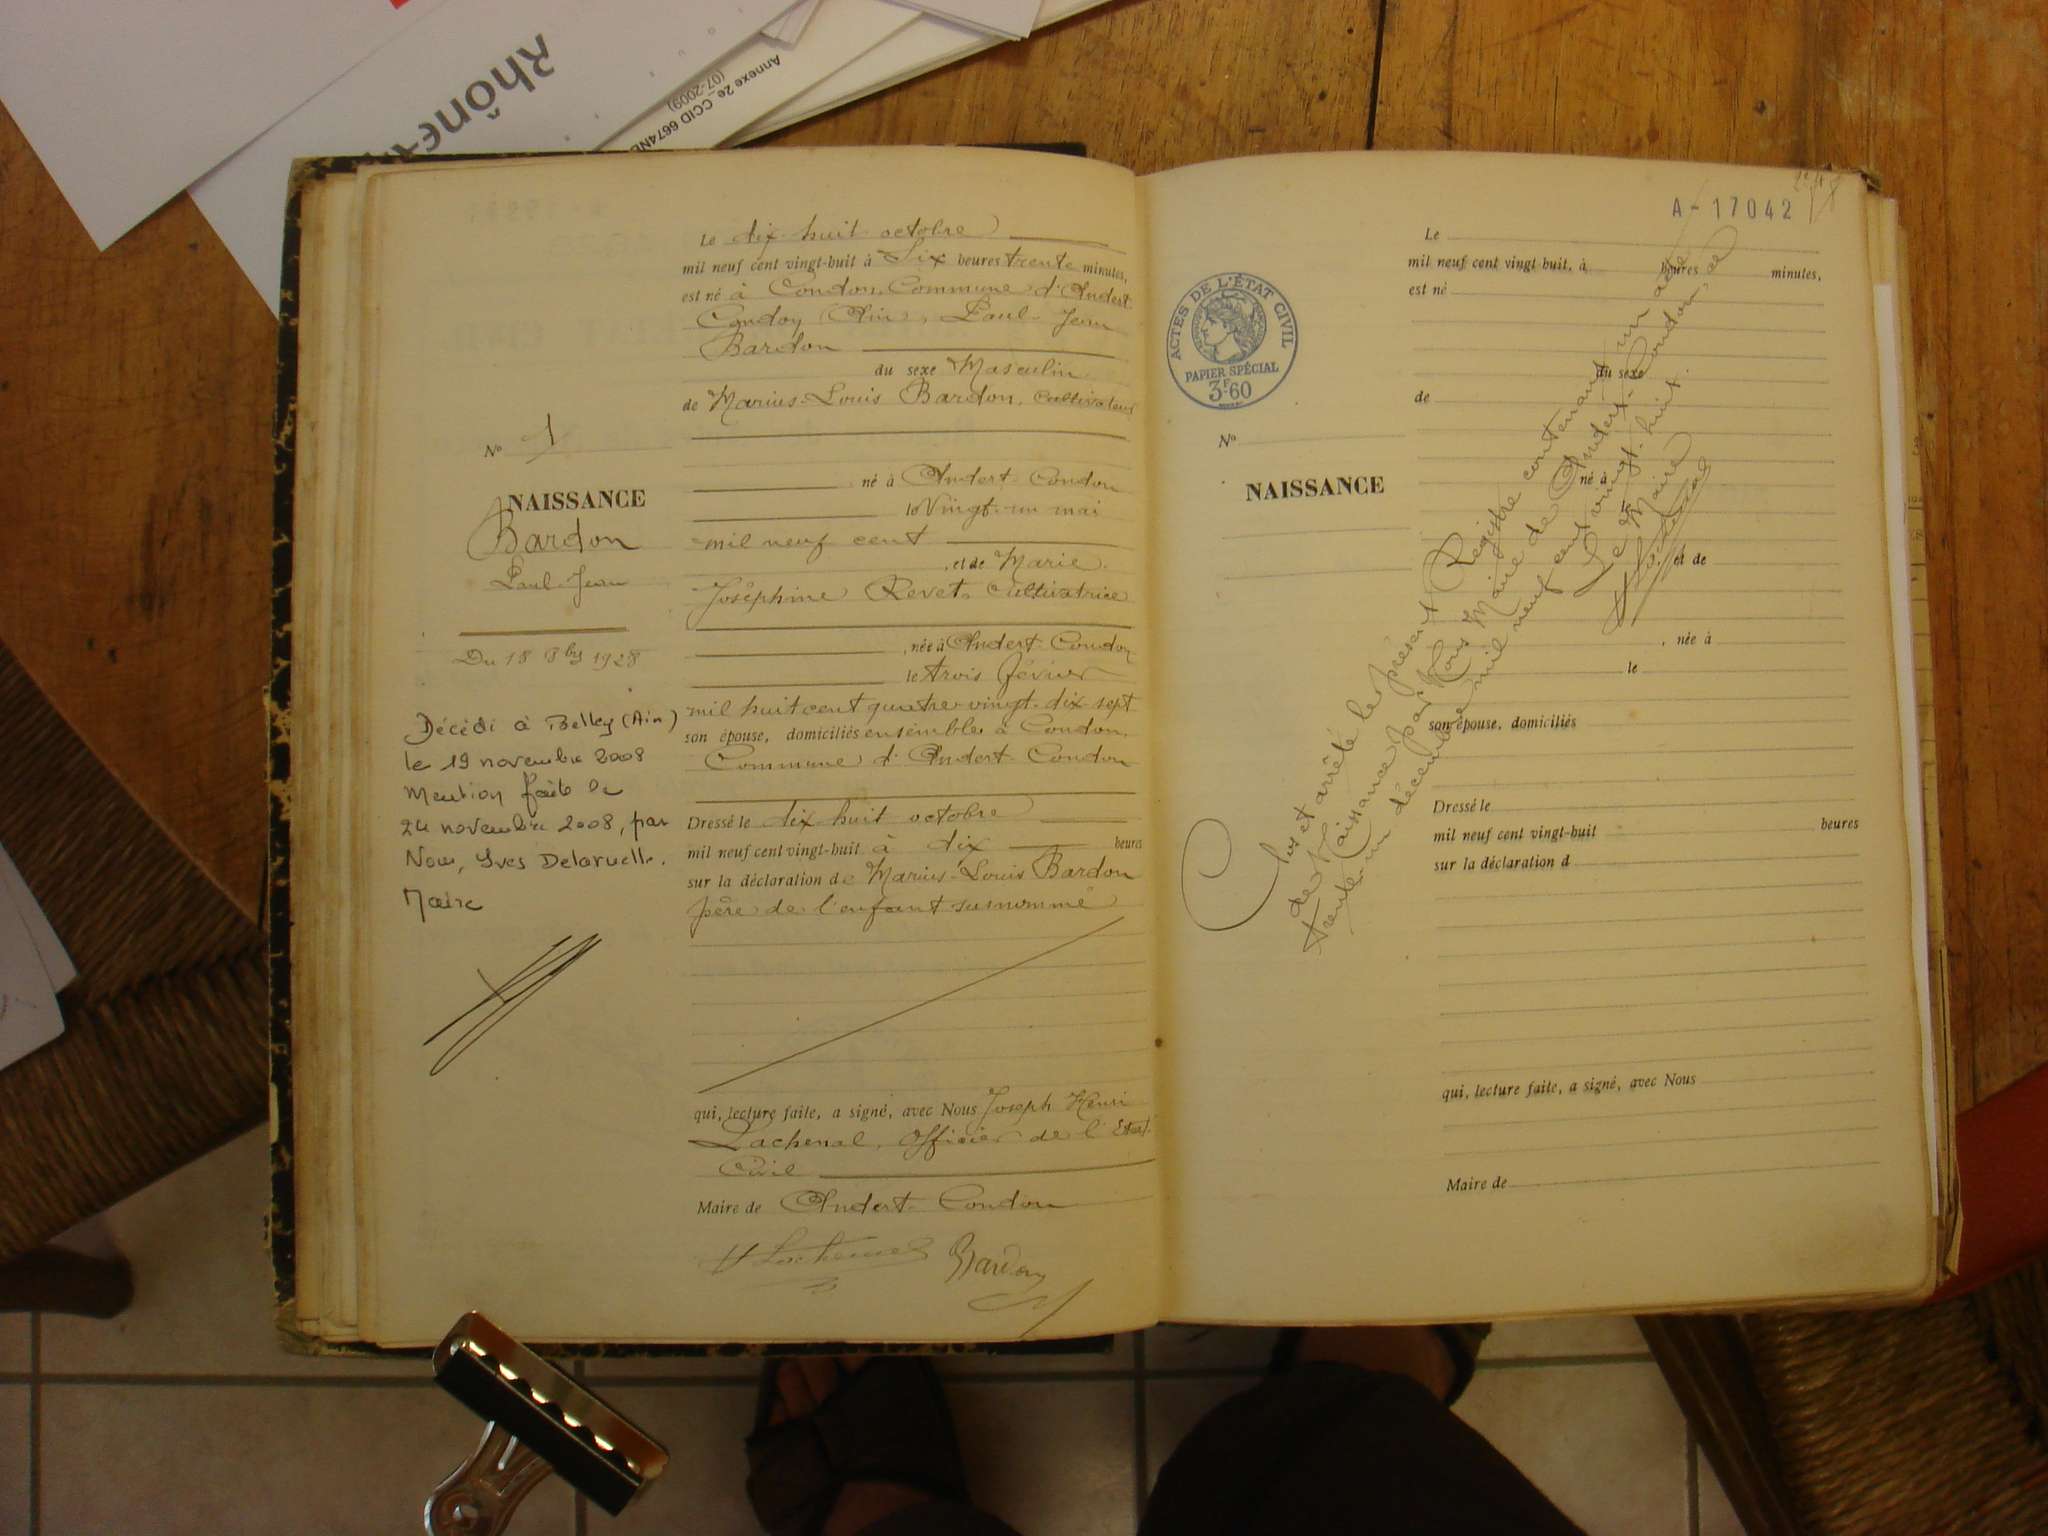 Rhône-
Annexe 2e CCID 6674NE
(07-2009)
Le dix huit octobre
mil neuf cent vingt-huit à Six heures trente minutes,
est né à Condon, Commune d'Andert-
Condon (Ain), Paul-Jean
Bardon
du sexe Masculin
de Marius-Louis Bardon, Cultivateur
né à Andert-Condon
le Vingt-un mai
mil neuf cent
, et de Marie
Joséphine Revet, Cultivatrice
, née à Andert-Condon
le trois février
mil huit cent quatre-vingt-dix-sept
son épouse, domiciliés ensemble à Condon,
Commune d'Andert-Condon
Dressé le dix huit octobre
mil neuf cent vingt-huit à dix heures
sur la déclaration de Marius-Louis Bardon
père de l'enfant susnommé
qui, lecture faite, a signé, avec Nous Joseph Henri
Lachenal, Officier de l'Etat-
Civil
Maire de Andert-Condon
H Lachenal Bardon
No 1
NAISSANCE
Bardon
Paul-Jean
Du 18 8bre 1928
Décédé à Belley (Ain)
le 19 novembre 2008
Mention faite le
24 novembre 2008, par
Nous, Yves Delaruelle,
Maire
A-17042
ACTES DE L'ÉTAT CIVIL
PAPIER SPÉCIAL
3F60
No
NAISSANCE
Le
mil neuf cent vingt-huit, à heures minutes,
est né
du sexe
de
né à
le
, et de
, née à
le
son épouse, domiciliés
Dressé le
mil neuf cent vingt-huit heures
sur la déclaration d
qui, lecture faite, a signé, avec Nous
Maire de
Clos et arrêté le présent Registre contenant un acte
de Naissance par Nous Maire de Andert-Condon, ce
trente-un décembre mil neuf cent vingt-huit.
Le Maire